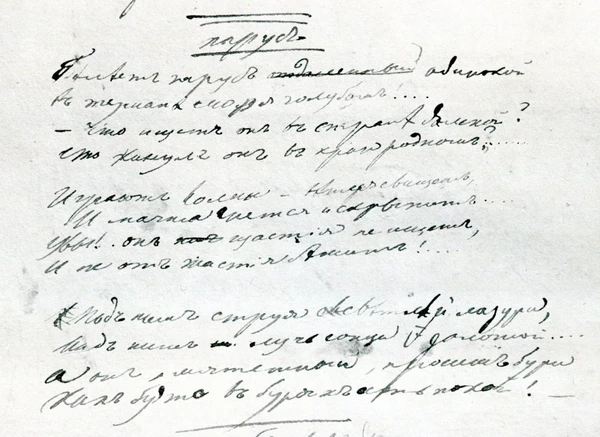 парусъ
Бѣлѣетъ парусъ отдаленный одинокой
въ туманѣ моря голубомъ!....
– Что ищетъ онъ въ странѣ далекой?
что кинулъ онъ въ краю родномъ?.....
Играютъ волны – вѣтръ свищетъ,
И мачта гнется и скрыпитъ....
Увы! онъ щастія не ищетъ,
И не отъ щастія бѣжитъ!....
Подъ нимъ струя свѣтлѣй лазури,
Надъ нимъ лучь солнца золотой....
а онъ, мятежный, проситъ бури
Какъ будто въ буряхъ есть покой! –